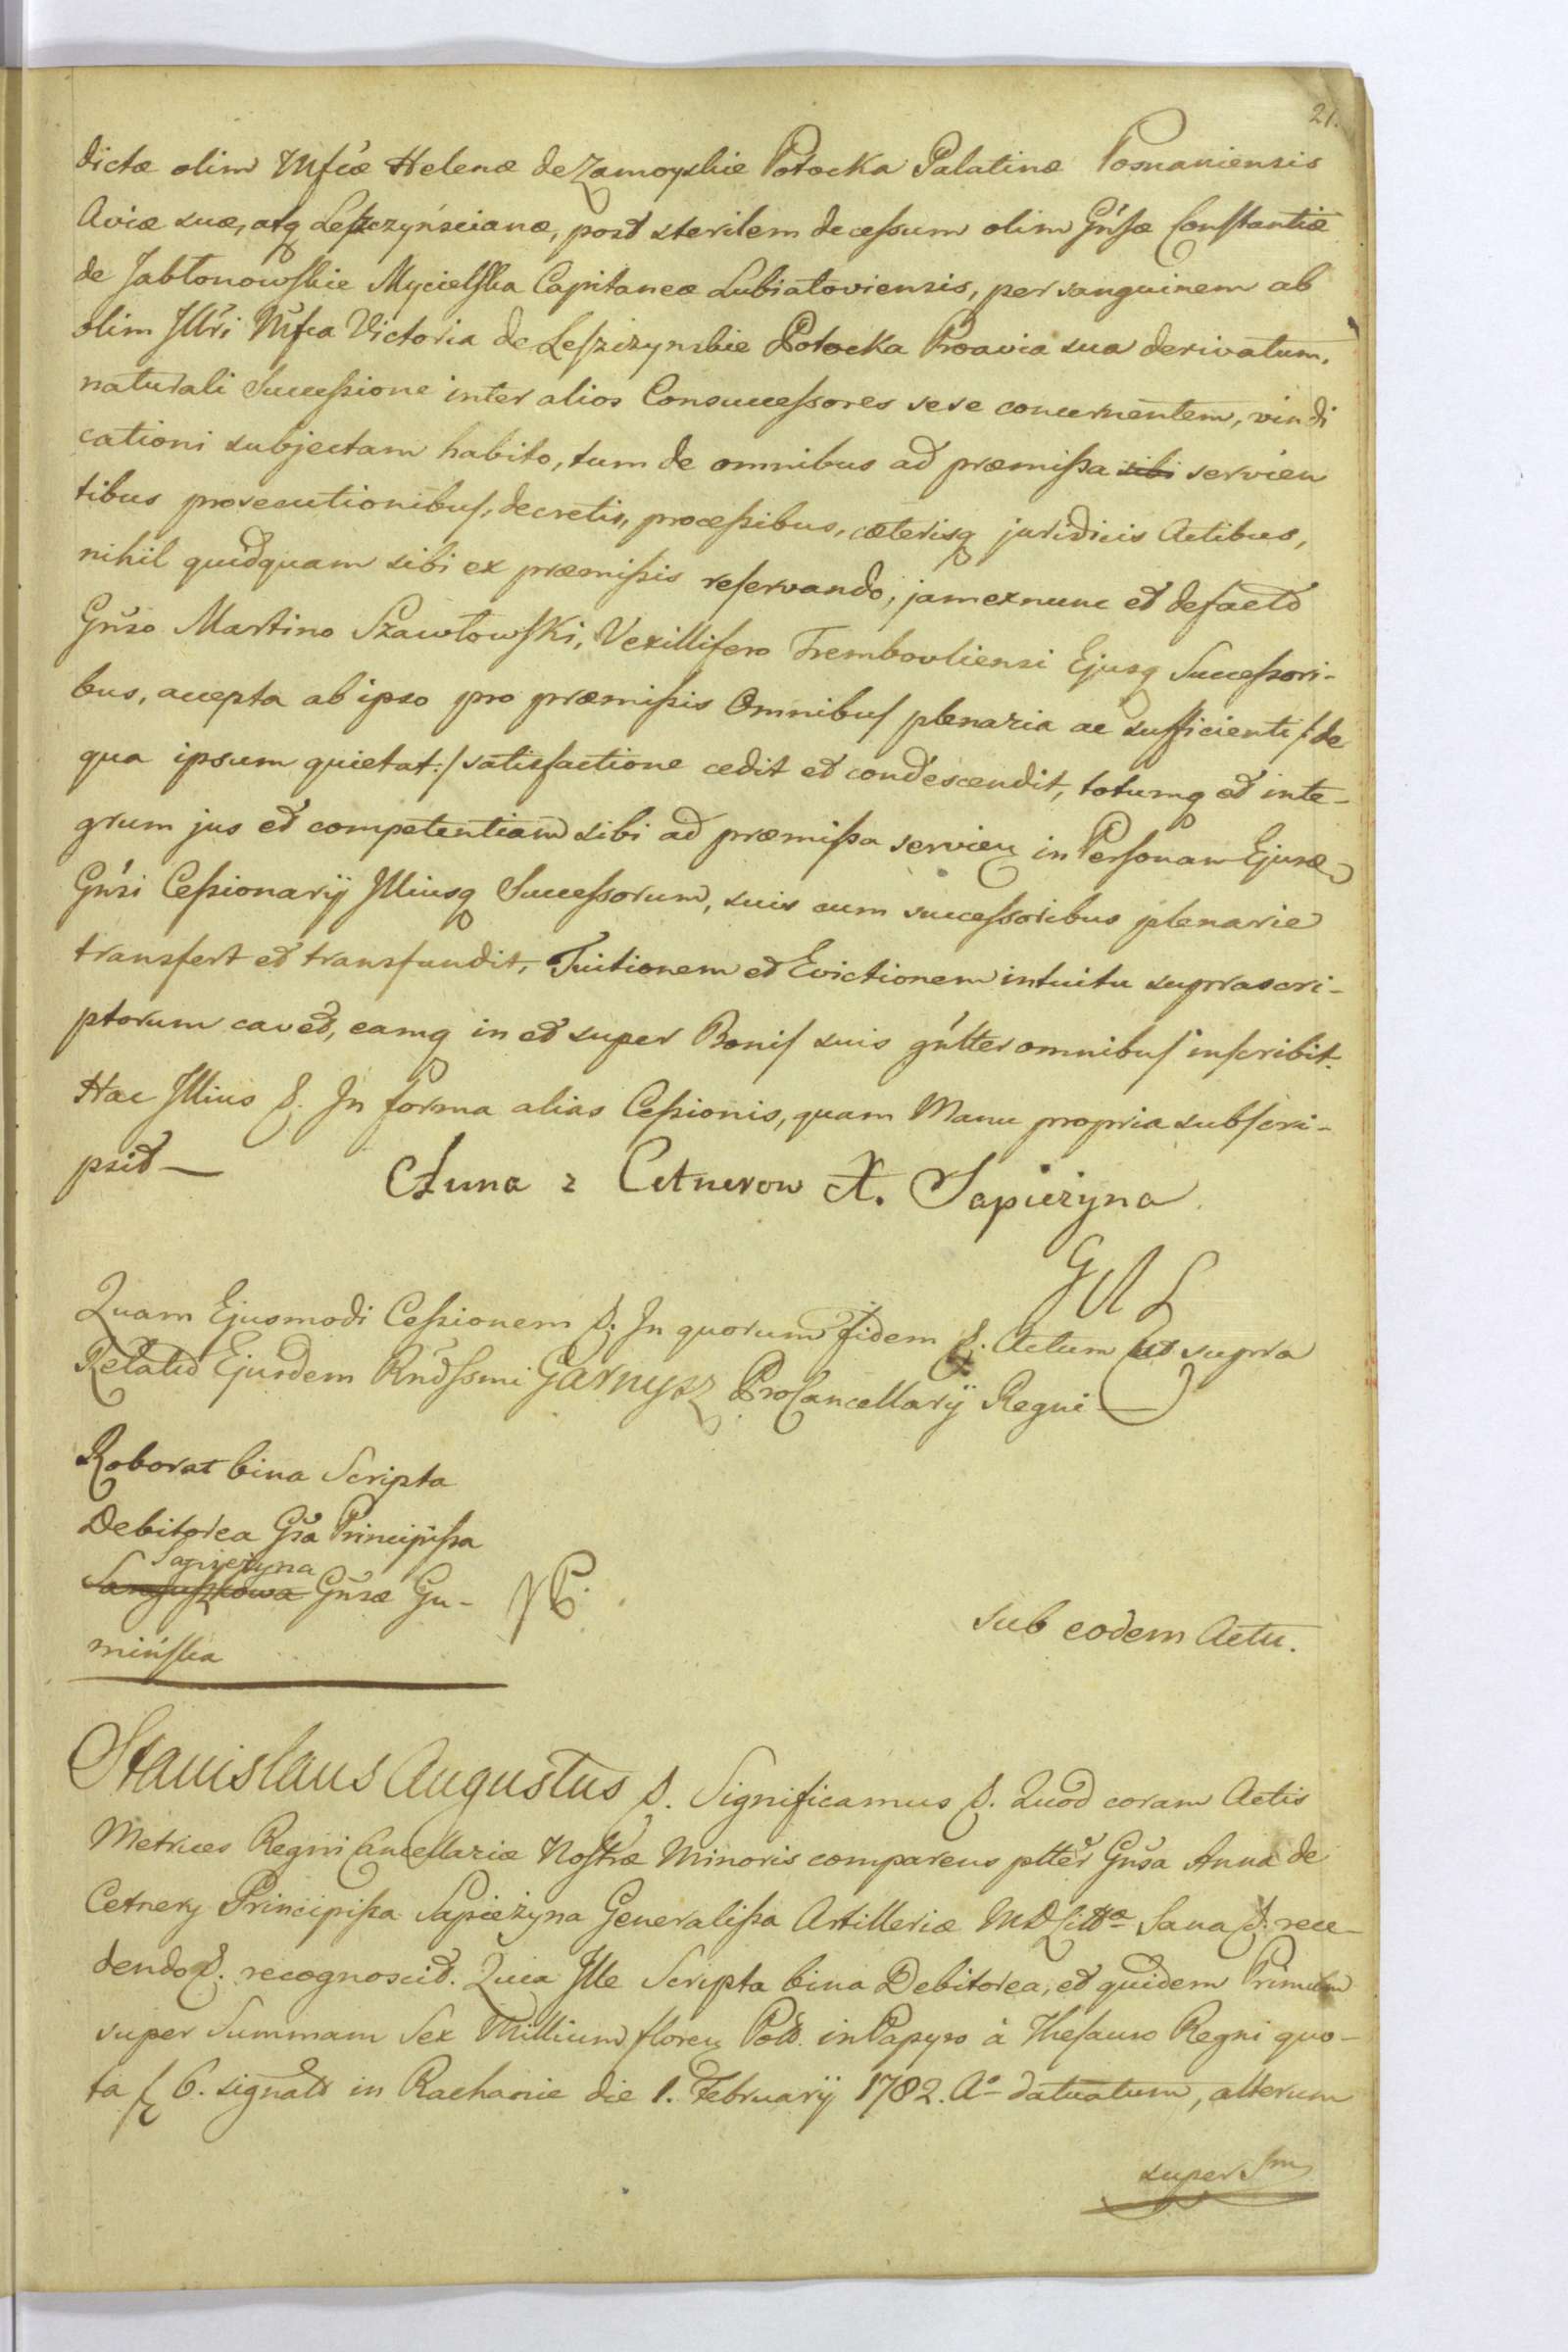 21.
dictæ olim Mfcæ Helenæ de Zamoyskie Potocka Palatinæ Posnaniensis
Aviæ suæ, atq Leszczyńscianæ, post sterilem decessum olim Gńsæ Constantiæ
de Jabłonowskie Mycielska Capitaneæ Lubiatoviensis, per sanguinem ab
olim Jllri Mfca Victoria de Leszczynskie Potocka Proavia sua derivatum,
naturali Successione inter alios Consuccessores sese concernentem, vindi
cationi subjectam habito, tum de omnibus ad præmissa sibi servien
tibus prosecutionibus, decretis, processibus, cæterisq juridicis Actibus,
nihil quidquam sibi ex præmissis reservando, jam ex nunc et de facto
Gńso Martino Szawłowski, Vexillifero Trembovliensi Ejusq Successori-
bus, accepta ab ipso pro præmissis Omnibus plenaria ac sufficienti /: de
qua ipsum quietat :/ satisfactione cedit et condescendit, totumq et inte-
grum jus et competentiam sibi ad præmissa servien in Personam Ejusd
Gńsi Cessionarij Jlliusq Successorum, suis cum successoribus plenarie
transfert et transfundit, Tuitionem et Evictionem intuitu suprascri-
ptorum cavet, eamq in et super Bonis suis gńlter omnibus inscribit.
Hac Jllius &. Jn forma alias Cessionis, quam Manu propria subscri-
psit —
Anna z Cetnerow X. Sapieżyna
GAL
Quam Ejusmodi Cessionem &. Jn quorum fidem &. Actum ut supra
Relatio Ejusdem Rńdssmi Garnysz ProCancellarij Regni
Roborat bina Scripta
Debitorea Gsa Principissa
Sapieżyna
Sanguszkowa Gńsæ Gu-
mińska
sub eodem Actu.
Stanislaus Augustus &. Significamus &. Quod coram Actis
Metrices Regni Cancellariæ Nostræ Minoris comparens pltter Gńsa Anna de
Cetnery Principissa Sapieżyna Generalissa Artilleriæ MDLittæ Sana &. rece-
dendo &. recognoscit. Quia Jlle Scripta bina Debitorea, et quidem Primum
super Summam Sex Millium floren Pol. in Papyro à Thesauro Regni quo-
ta f 6. signato in Rachanie die 1. Februarij 1782. Ao datuatum, alterum
super Sm